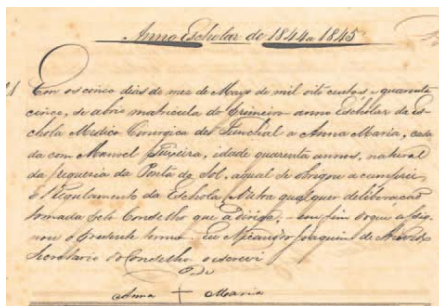 Anno Escholar de 1844 a 1845
Em os cinco dias do mez de Mayo de mil oito centos e quarenta
cinco, se abrio matricula do primeiro anno Eschólar da Es-
chola Medico Cirurgica del Funchal a Anna Maria, casa
da com Manoel Teixeira, idade quarenta annos, natural
da freguezia da Ponta do Sol, a qual se obrigou a cumprir
o Regulamento da Eschola, e outra qualquer deliberação
tomada pelo Conselho que a dirige, em fim do que assig-
nou o presente termo Eu Nicandro Joaquim de Azevedo
Secretario do Conselho o escrevi
De
Anna + Maria